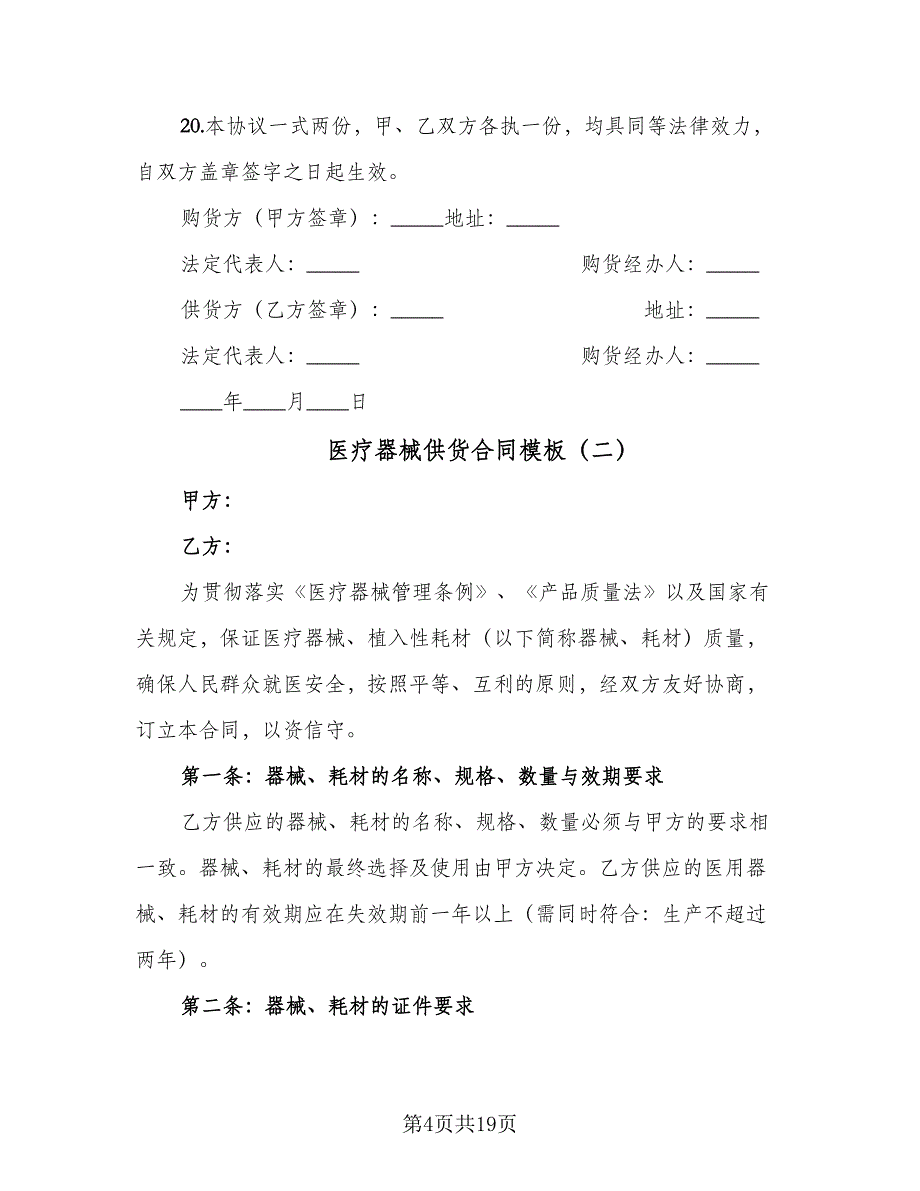 20.本协议一式两份，甲、乙双方各执一份，均具同等法律效力，
自双方盖章签字之日起生效。
购货方（甲方签章）：_____地址：_____
法定代表人：_____ 购货经办人：_____
供货方（乙方签章）：_____ 地址：_____
法定代表人：_____ 购货经办人：_____
____年____月____日
医疗器械供货合同模板（二）
甲方：
乙方：
为贯彻落实《医疗器械管理条例》、《产品质量法》以及国家有
关规定，保证医疗器械、植入性耗材（以下简称器械、耗材）质量，
确保人民群众就医安全，按照平等、互利的原则，经双方友好协商，
订立本合同，以资信守。
第一条：器械、耗材的名称、规格、数量与效期要求
乙方供应的器械、耗材的名称、规格、数量必须与甲方的要求相
一致。器械、耗材的最终选择及使用由甲方决定。乙方供应的医用器
械、耗材的有效期应在失效期前一年以上（需同时符合：生产不超过
两年）。
第二条：器械、耗材的证件要求
第4页共19页